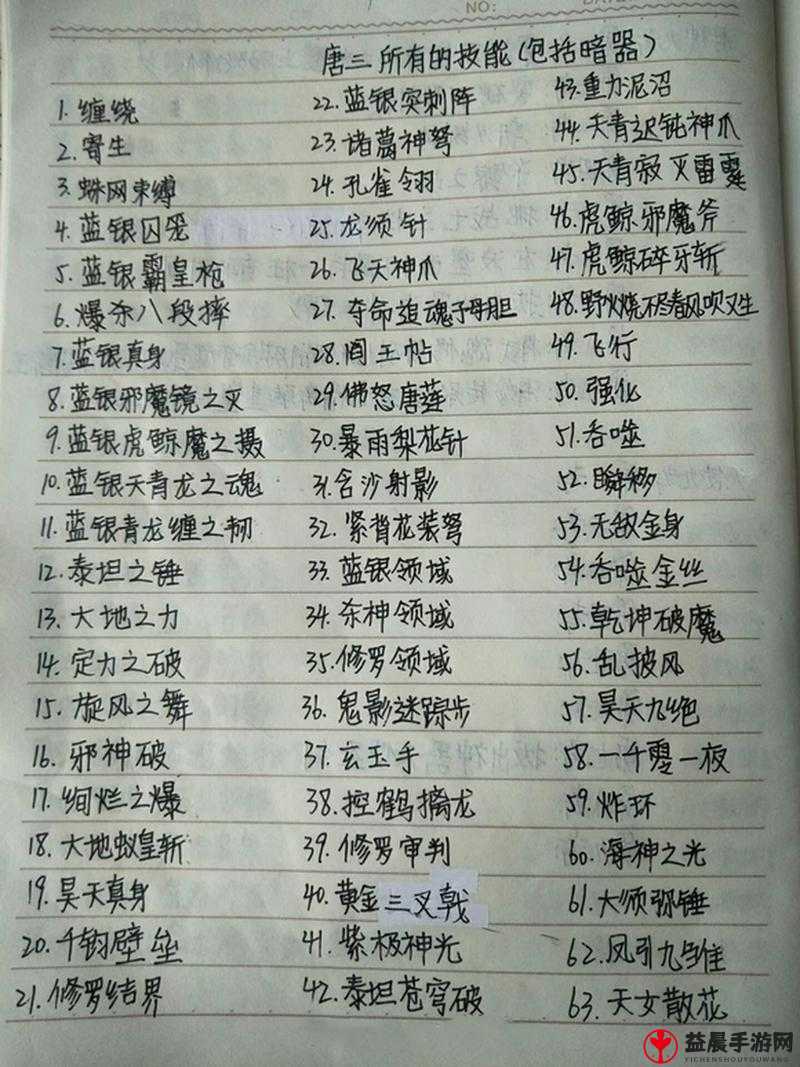 NO:
唐三所有的技能(包括暗器)
1.缠绕
2.寄生
3.蛛网束缚
4.蓝银囚笼
5.蓝银霸皇枪
6.爆杀八段摔
7.蓝银真身
8.蓝银邪魔镜之灭
9.蓝银虎鲸魔之摄
10.蓝银天青龙之魂
11.蓝银青龙缠之韧
12.泰坦之锤
13.大地之力
14.定力之破
15.旋风之舞
16.邪神破
17.绚烂之爆
18.大地蚁皇斩
19.昊天真身
20.千钧壁垒
21.修罗结界
22.蓝银突刺阵
23.诸葛神弩
24.孔雀翎羽
25.龙须针
26.飞天神爪
27.夺命追魂子母胆
28.阎王帖
29.佛怒唐莲
30.暴雨梨花针
31.含沙射影
32.紧背花装弩
33.蓝银领域
34.杀神领域
35.修罗领域
36.鬼影迷踪步
37.玄玉手
38.控鹤擒龙
39.修罗审判
40.黄金三叉戟
41.紫极神光
42.泰坦苍穹破
43.重力泥沼
44.天青迟钝神爪
45.天青寂灭雷霆
46.虎鲸邪魔斧
47.虎鲸碎牙斩
48.野火烧不尽春风吹又生
49.飞行
50.强化
51.吞噬
52.瞬移
53.无敌金身
54.吞噬金丝
55.乾坤破魔
56.乱披风
57.昊天九绝
58.一千零一夜
59.炸环
60.海神之光
61.大须弥锤
62.凤引九雏
63.天女散花
益晨手游网
YICHENSHOUYOUWANG